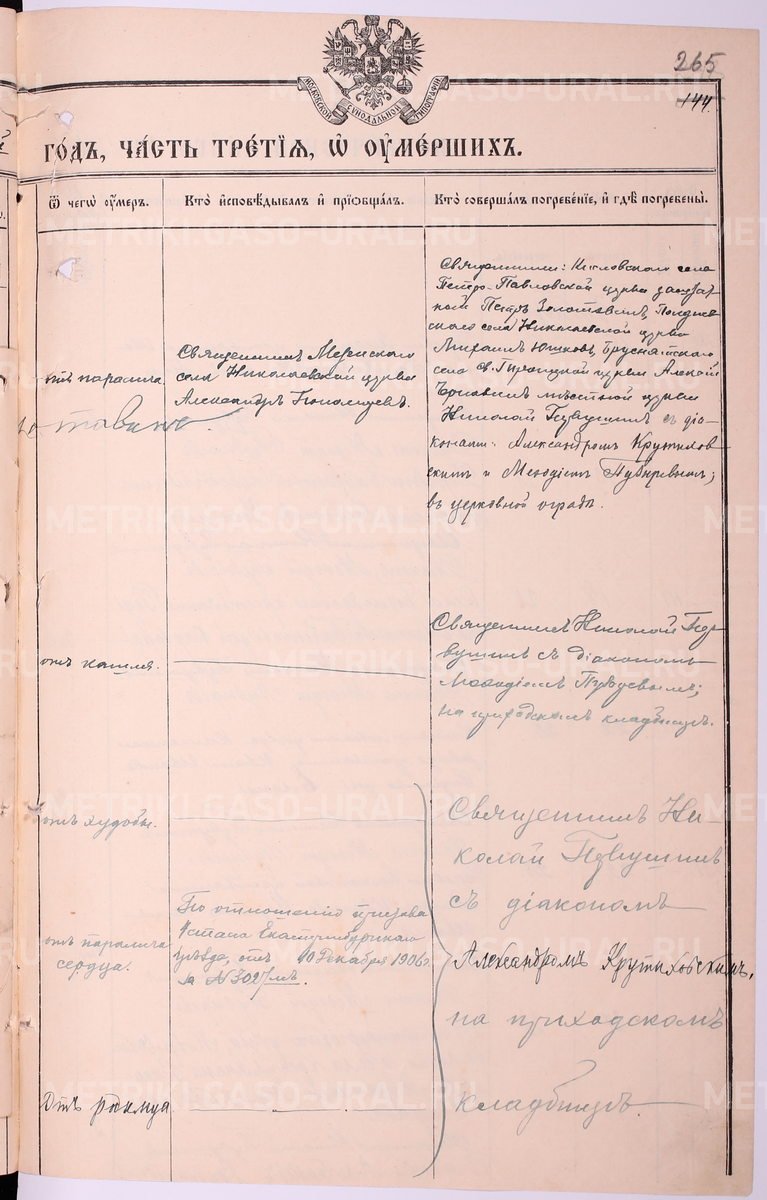 265
144.
МОСКОВСКОЙ СѴНОДАЛЬНОЙ ТИПОГРАФІИ
ГОДЪ, ЧАСТЬ ТРЕТІЯ, Ѡ ОУМЕРШИХЪ.
Ѿ чегѡ оумеръ.
Кто исповѣдывалъ и прїѡбщалъ.
Кто совершалъ погребенїе, и гдѣ погребены.
отъ паралича.
Священникъ Мезенскаго
села Николаевской церкви
Александръ
Священники: Кисловского села
Петро-Павловской церкви
Петръ Золотавинъ,
села Николаевской церкви
Михаилъ Юшковъ, Бруснятского
села св. Троицкой церкви Алексій
мѣстной церкви
Николай Первушинъ съ діа-
конами: Александромъ Крутихов-
скимъ и Меѳодіемъ
въ церковной оградѣ.
отъ кашля.
Священникъ Николай Пер-
вушинъ съ діакономъ
Меѳодіемъ
на приходскомъ кладбищѣ.
отъ худобы.
Священникъ Ни
колай Первушинъ
съ діакономъ
Александромъ Крутиховскимъ,
на приходскомъ
кладбищѣ.
отъ паралича
сердца.
По отношенію пристава
стана Екатеринбургскаго
уѣзда, отъ 10 декабря 1906 г.
за № 3027мъ.
Отъ родимца
METRIKI.GASO-URAL.RU